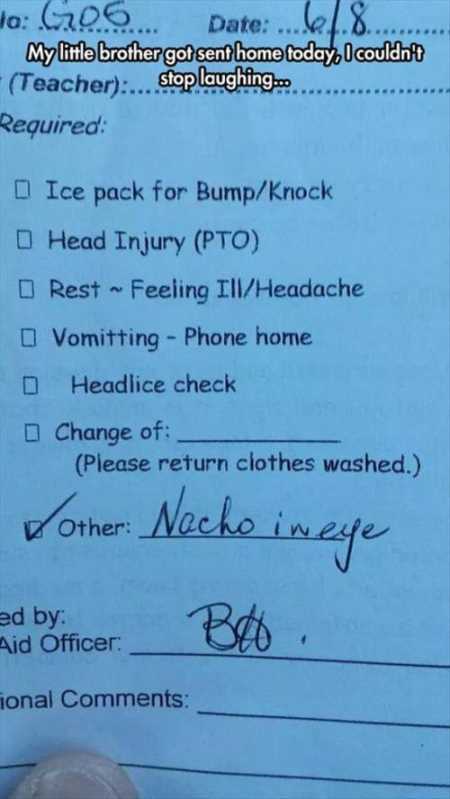 No: G06 Date: 6/8
My little brother got sent home today, I couldn't
(Teacher): stop laughing...
Required:
Ice pack for Bump/Knock
Head Injury (PTO)
Rest ~ Feeling Ill/Headache
Vomitting - Phone home
Headlice check
Change of:
(Please return clothes washed.)
Other: Nacho in eye
ed by:
Aid Officer:
ional Comments: